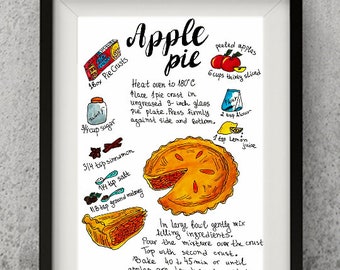 Apple
pie
1 box Pie Crusts
peeled apples
6 cups thinly sliced
Heat oven to 180°C
Place 1 pie crust in
ungreased 9-inch glass
pie plate. Press firmly
against side and bottom.
3/4 cup sugar
2 tbsp flour
1 tbsp lemon
juice
3/4 tsp cinnamon
1/4 tsp salt
1/8 tsp ground nutmeg
In large bowl gently mix
filling ingredients.
Pour the mixture over the crust
Top with second crust.
Bake 40 to 45 min or until